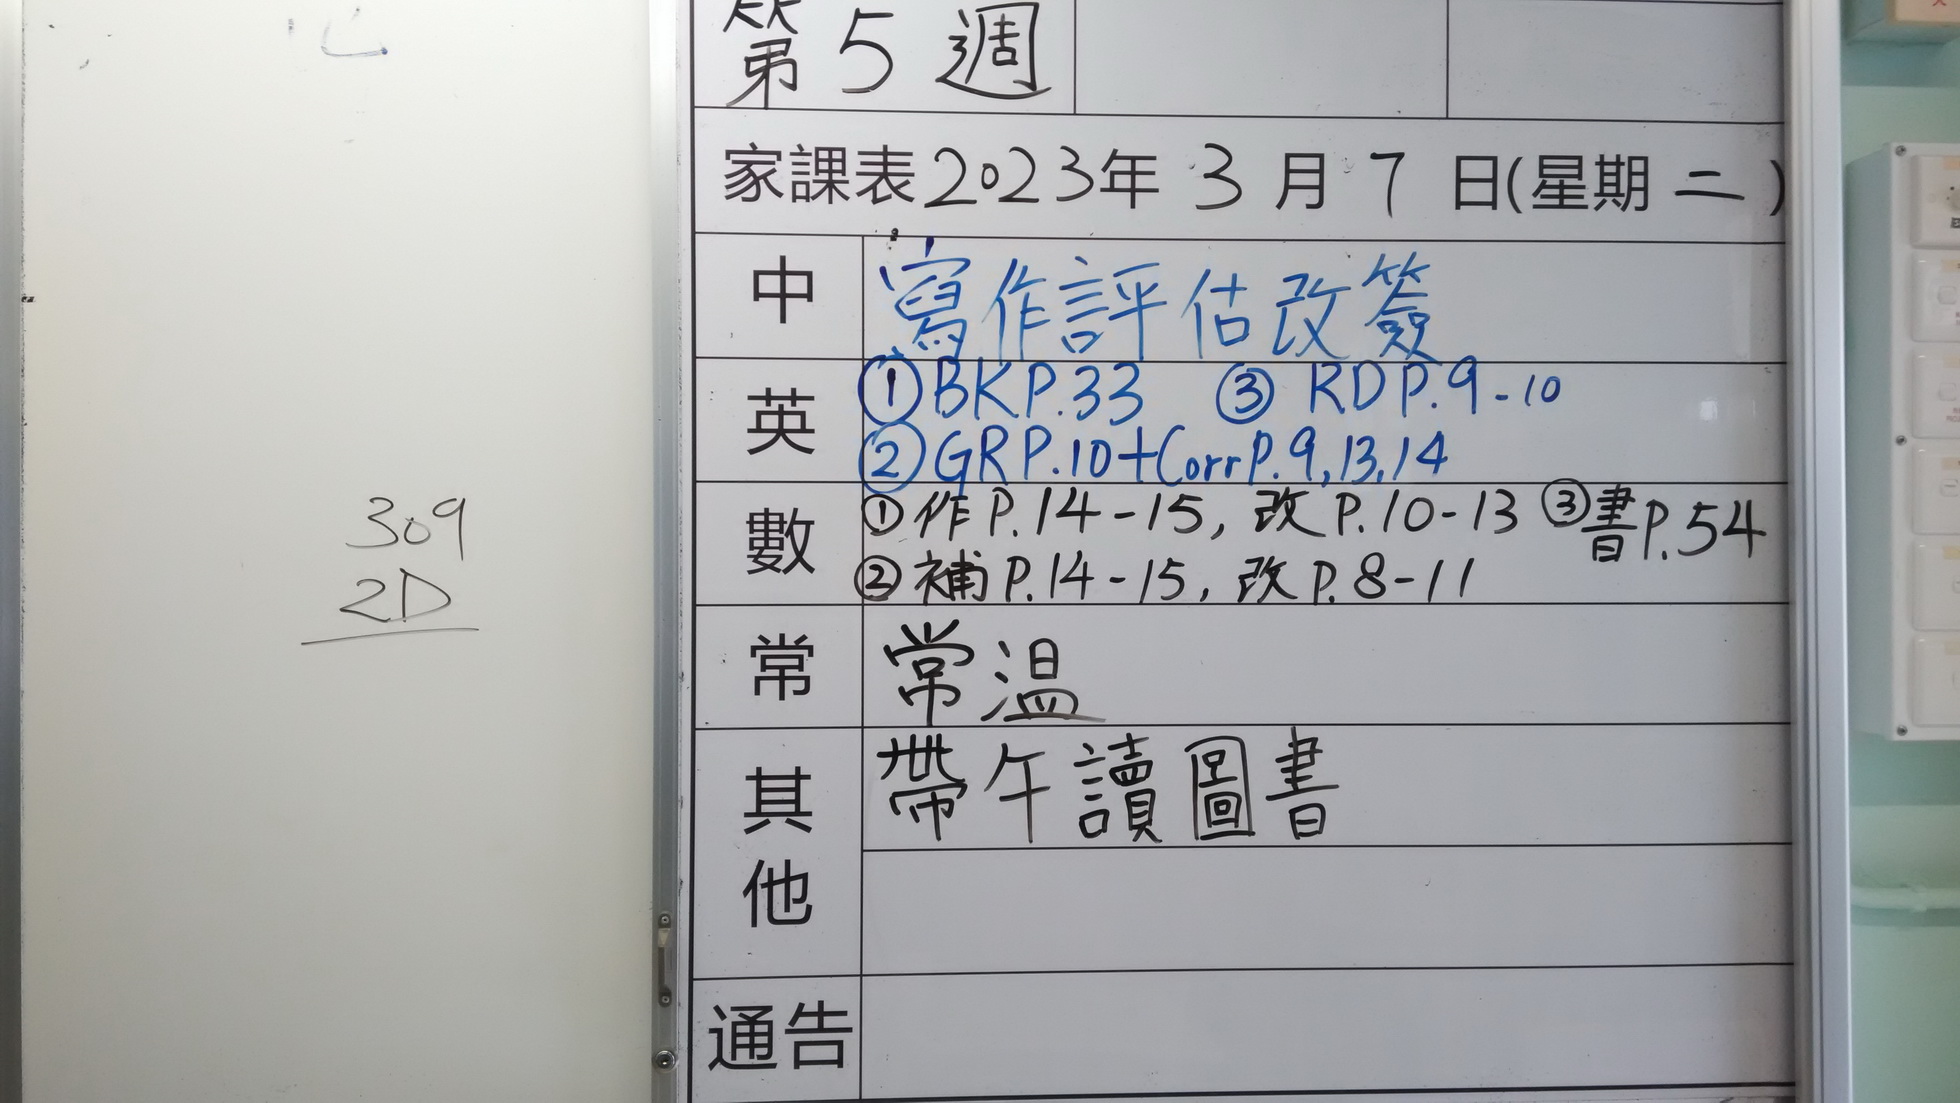 309
2D
第5週
家課表2023年3月7日(星期二)
中 寫作評估改簽
英 ①BKP.33 ③RDP.9-10
②GRP.10+CorrP.9,13,14
數 ①作P.14-15,改P.10-13 ③書P.54
②補P.14-15,改P.8-11
常 常溫
其他 帶午讀圖書
通告